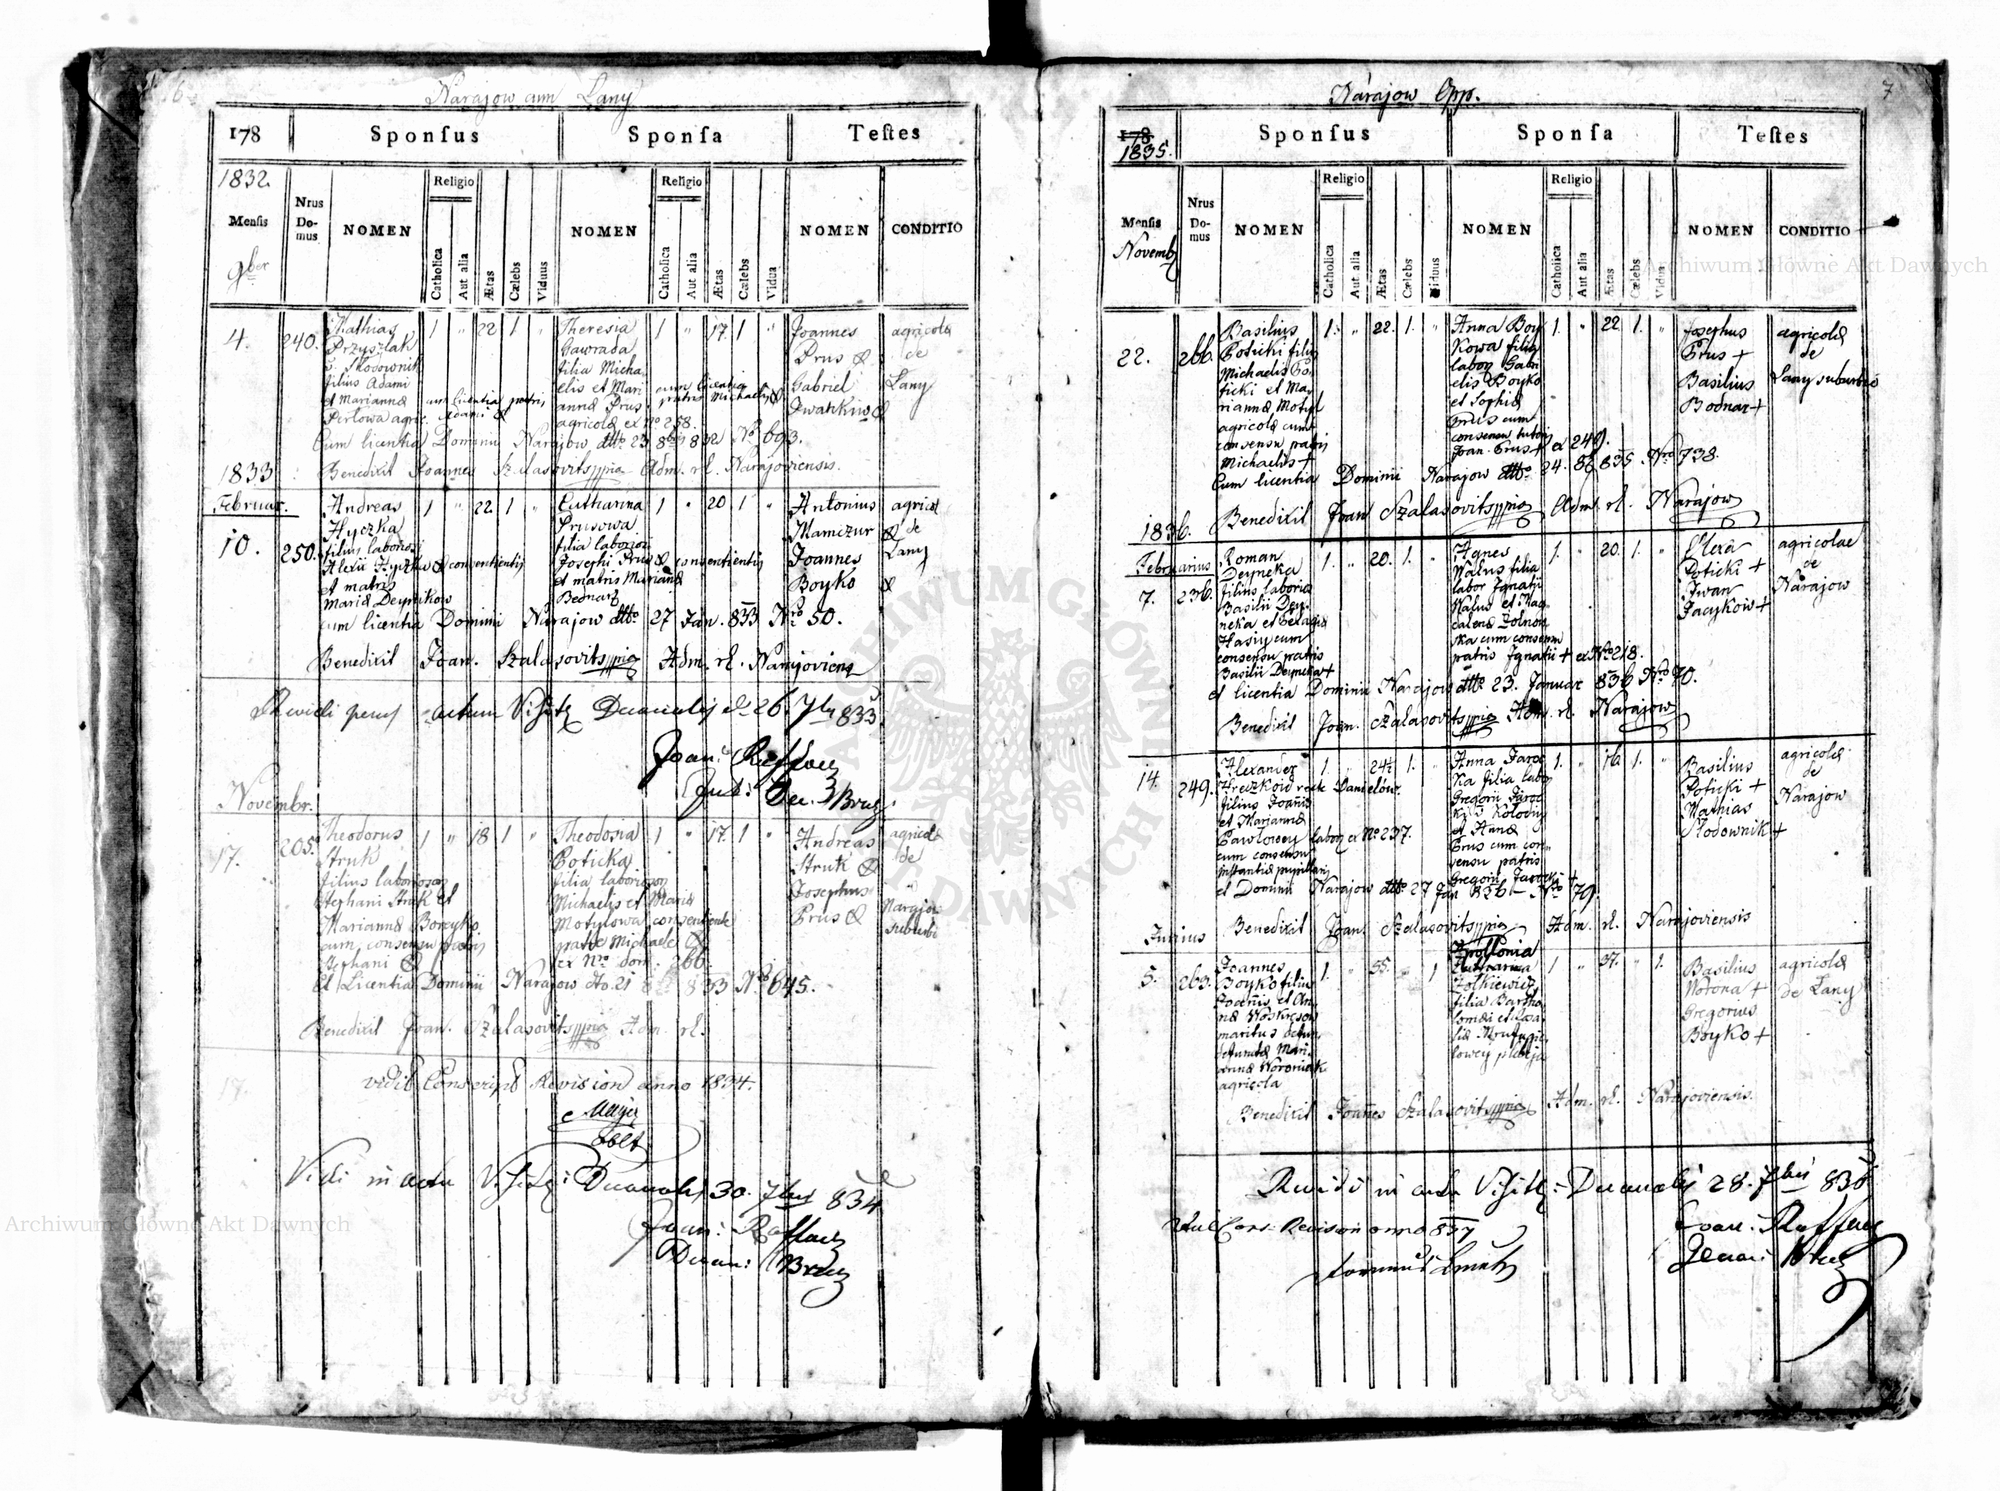 6
Narajow cum Lany
178 Sponsus Sponsa Testes
1832
Mensis
9ber
Nrus Domus
NOMEN
Religio
Catholica
Aut alia
Ætas
Cœlebs
Viduus
NOMEN
Religio
Catholica
Aut alia
Ætas
Cœlebs
Vidua
NOMEN
CONDITIO
4. 240.
Mathias
Przyszlak
filius Adami
et Mariannæ
Perlowa agric.
cum licentia patris
Adami
1 " 22 1 "
Theresia
Gawrada
filia Micha-
elis et Mari-
annæ Prus
agricolæ ex No 258.
cum licentia
patris Michaelis
1 " 17 1 "
Joannes
Prus
Gabriel
Iwankiw
agricolæ
de
Lany
Cum licentia Dominii Narajow dtto 23 8br 832 No 693.
Benedixit Joannes Szalasovits mpria Adm. rl. Narajoviensis.
1833
Februar.
10. 250.
Andreas
Hyczka
filius laborios.
Alexii Hyczka consentientis
et matris
Mariæ Deynikow
1 " 22 1 "
Catharina
Prusowa
filia laborios.
Josephi Prus consentientis
et matris Mariannæ
Bednarz
1 " 20 1 "
Antonius
Mamczur
Joannes
Boyko
agricol
de
Lany
cum licentia Dominii Narajow dtto 27 Jan. 833 Nro 50.
Benedixit Joan. Szalasovits mpria Adm. rl. Narajoviens
Revidi actum Visitæ Decanalis 26. 7br 833.
Joan:
Dec:
Novembr.
17. 205.
Theodorus
Struk
filius laboriosor
Stephani Struk et
Mariannæ Boreyko
cum consensu patris
Stephani
1 " 18 1 "
Theodosia
Poticka
filia laboriosor
Michaelis et Mariæ
Motylowa consentiente
patre Michaele
ex Nro dom. 266.
1 " 17. 1 "
Andreas
Struk
Josephus
Prus
agricolæ
de
Narajow
suburbi
Et Licentia Dominii Narajow dto. 21 833 No 645.
Benedixit Joan. Szalasovits mpria Adm. rl.
vidit Conscript Revision anno 1834.
Vidi in actu Visitæ: Decanalis 30. 7bris 834
Joan:
Decan:
7
Narajow Opp.
178
1835. Sponsus Sponsa Testes
Mensis
Novemb
Nrus Domus
NOMEN
Religio
Catholica
Aut alia
Ætas
Cœlebs
Viduus
NOMEN
Religio
Catholica
Aut alia
Ætas
Cœlebs
Vidua
NOMEN
CONDITIO
22. 266.
Basilius
Poticki filius
Michaelis Po-
ticki et Ma-
riannæ Motyl
agricolæ cum
consensu patris
Michaelis +
1. " 22. 1. "
Anna Boy
kowa filia
labor Gabri
elis Boyko
et Sophiæ
Prus cum
consensu tutoris
Joan. Prus + ex 249.
1. " 22. 1. "
Josephus
Prus +
Basilius
Bodnar +
agricolæ
de
Lany suburbio
Cum licentia Dominii Narajow dtto 24. 8b 835. Nro 738.
Benedixit Joan Szalasovits mpria Adm. rl. Narajow
1836.
Februarius
7. 236.
Roman
Deyneka
filius laborios
Basilii Dey-
neka et Pelagiæ
Hasiy cum
consensu patris
Basilii Deyneka +
1. " 20. 1. "
Agnes
Walus filia
labor Ignatii
Walus et Mag-
dalenæ Zolnow
ska cum consensu
patris Ignatii + ex No 218.
1. " 20. 1. "
Olexa
Poticki +
Iwan
Jacykow +
agricolae
de
Narajow
et licentia Dominii Narajow dtto 23. Januar 836 Nro 70.
Benedixit Joan. Szalasovits mpria Adm. rl. Narajow
14. 249.
Alexander
Hreczkow recte Danielow.
filius Joannis
et Mariannæ
Pawlowey labor ex No 237.
cum consensu
instantiæ pupillaris
1. " 24½ 1. "
Anna Jaroc
ka filia labor
Gregorii Jaroc
ki Kolodiy
et Annæ
Prus cum con-
sensu patris
Gregorii Jarocki +
1. " 16 1. "
Basilius
Poticki +
Mathias
Slodownik +
agricolæ
de
Narajow
et Dominii Narajow dtto 27 Jan 836 Nro 79.
Benedixit Joan. Szalasovits mpria Adm. rl. Narajoviensis
Junius
5. 263.
Joannes
Boyko filius
Joannis et An-
næ Woskreson
maritus defun
defunctæ Mari-
annæ Woroniak
agricola
1. " 35. " 1
Apollonia
Catharina
Zolkiewicz
filia Bartho
lomæi et Rosa
liæ
1 " 37. " 1.
Basilius
Worona +
Gregorius
Boyko +
agricolæ
de Lany
Benedixit Joannes Szalasovits mpria Adm. rl. Narajoviensis.
Revidi in actu Visitæ: Decanalis 28. 7bris 836
Cons: Revision anno 837
Joan:
Archiwum Główne Akt Dawnych
Archiwum Główne Akt Dawnych
ARCHIWUM GŁÓWNE AKT DAWNYCH